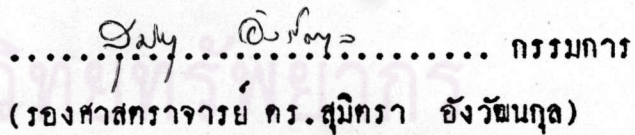 ............................... กรรมการ
(รองศาสตราจารย์ ดร.สุมิตรา อังวัฒนกุล)